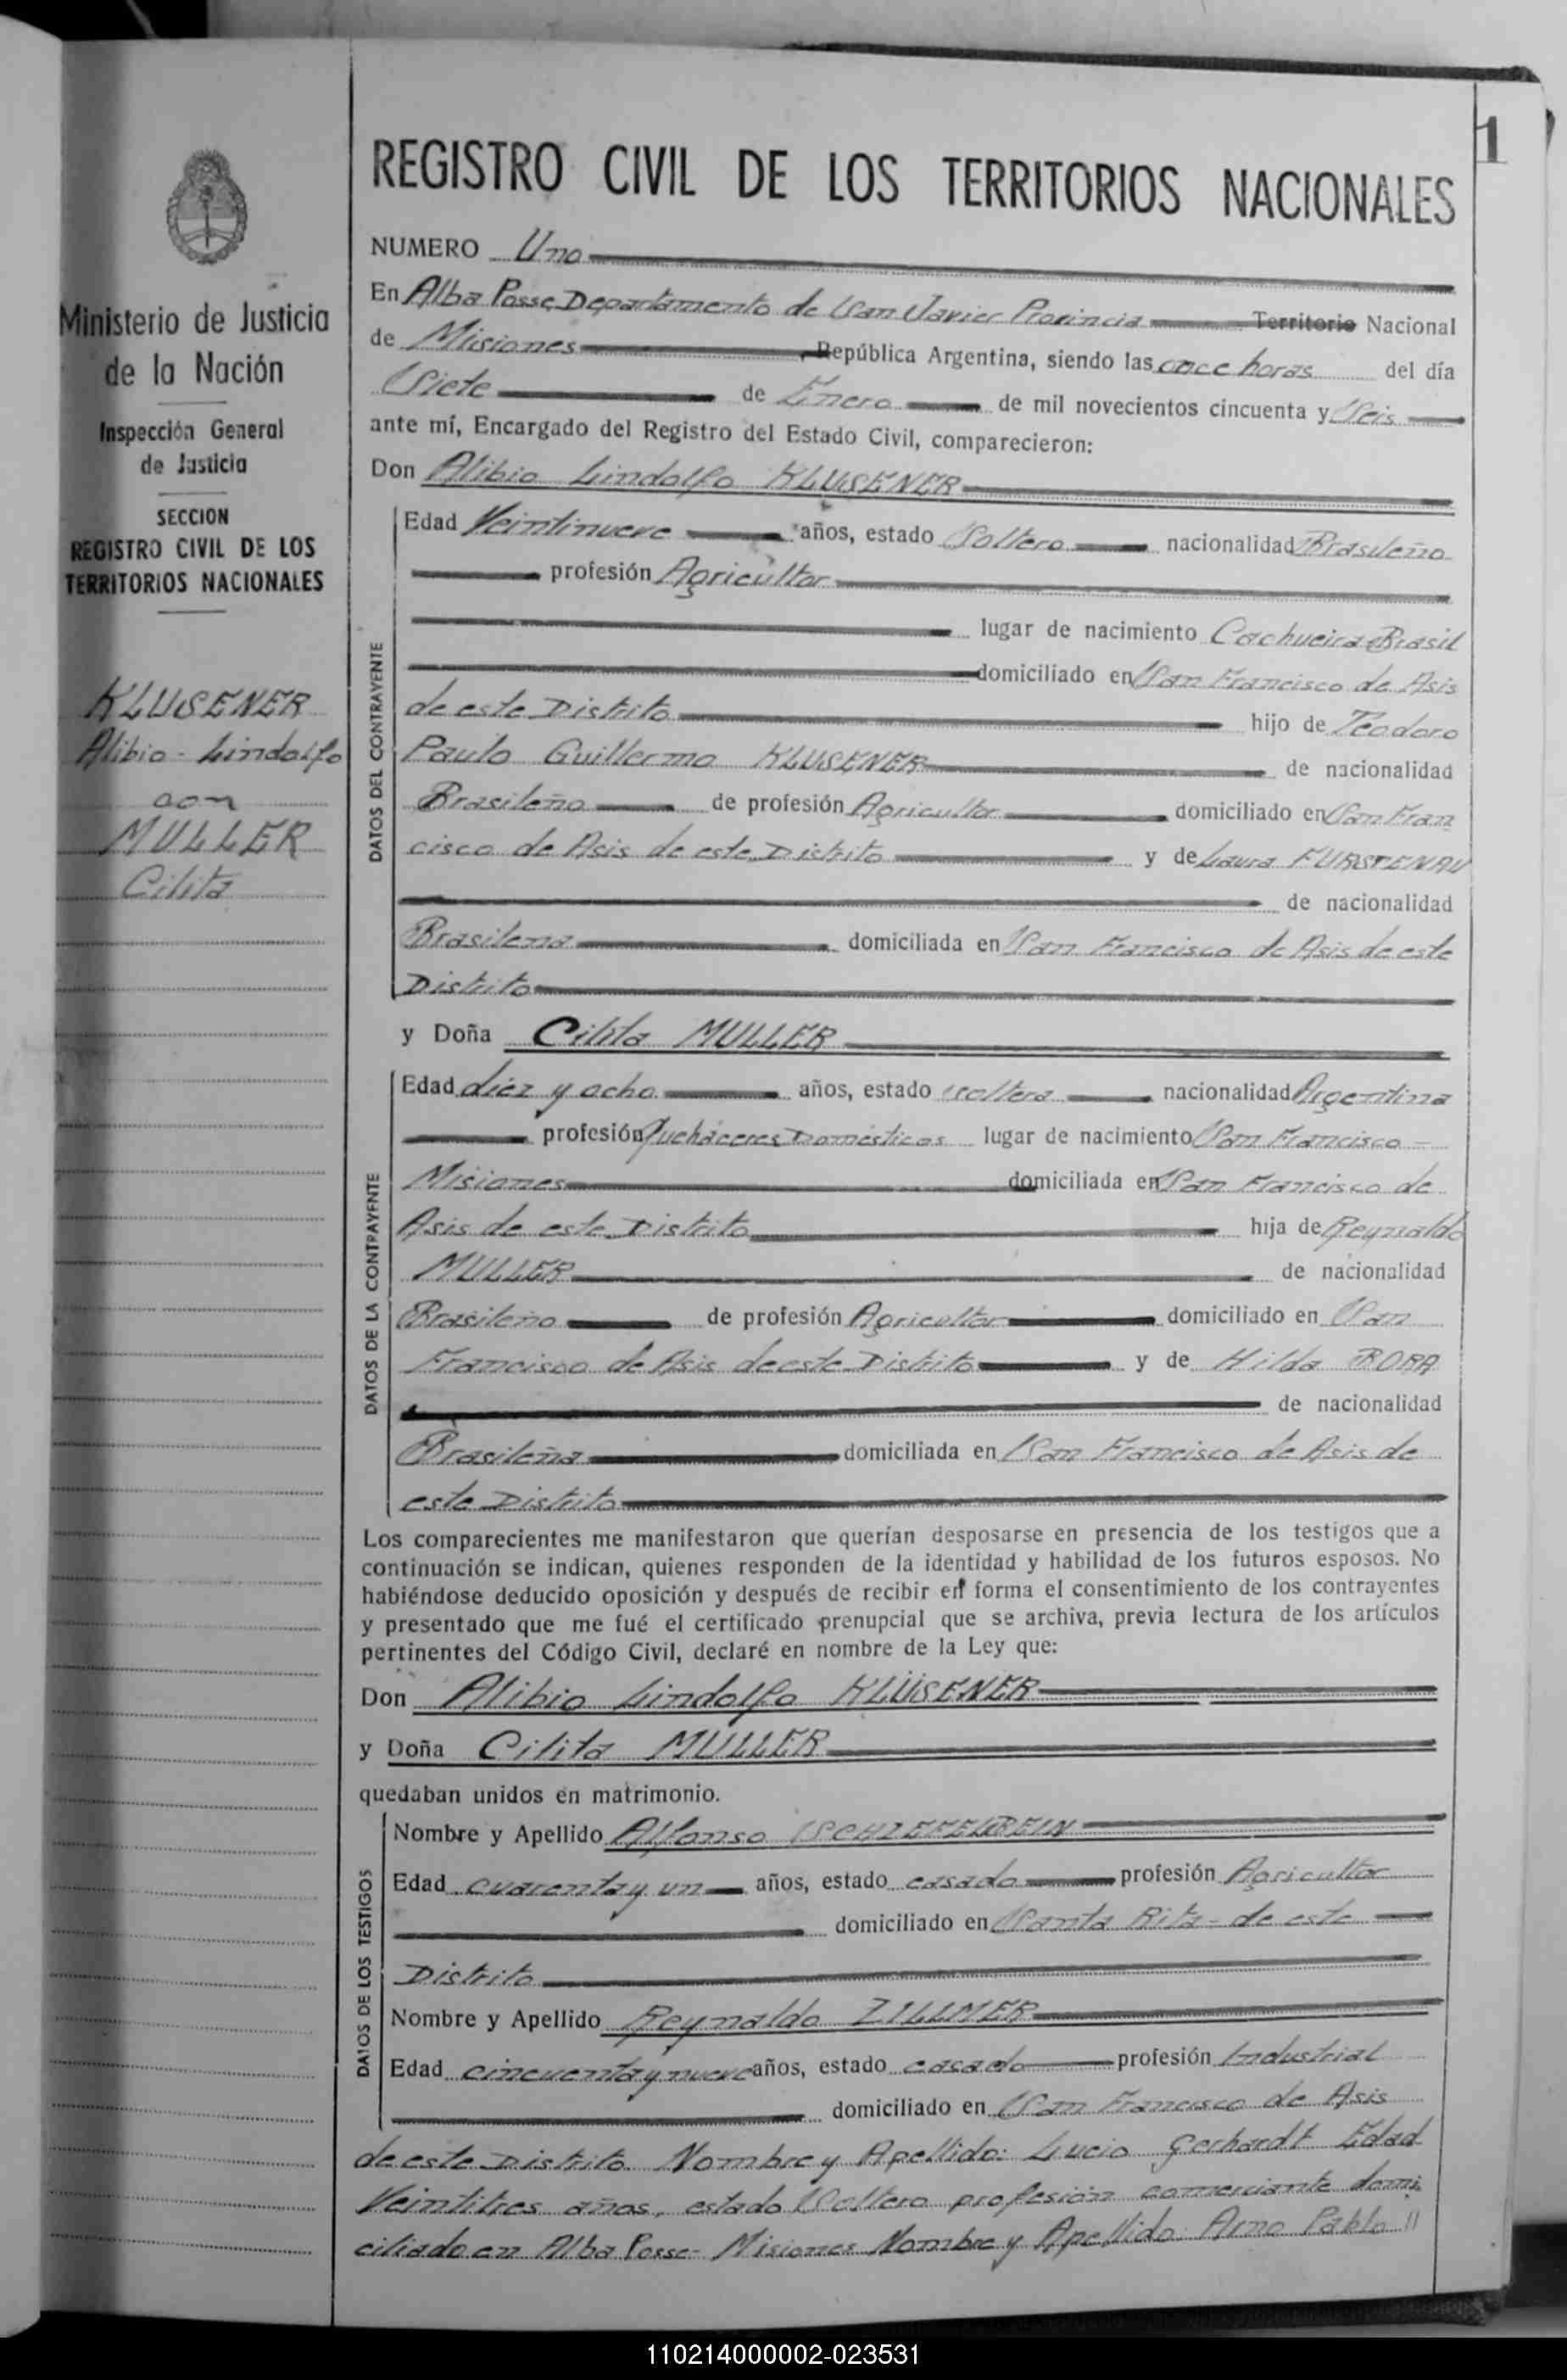 1
REGISTRO CIVIL DE LOS TERRITORIOS NACIONALES
Ministerio de Justicia
de la Nación
Inspección General
de Justicia
SECCION
REGISTRO CIVIL DE LOS
TERRITORIOS NACIONALES
KLUSENER
Alibio - Lindolfo
con
MULLER
Cilita
NUMERO Uno
En Alba Posse, Departamento de San Javier Provincia Territorio Nacional
de Misiones, República Argentina, siendo las once horas del día
Siete de Enero de mil novecientos cincuenta y Seis
ante mí, Encargado del Registro del Estado Civil, comparecieron:
Don Alibio Lindolfo KLUSENER
DATOS DEL CONTRAYENTE
Edad Veintinueve años, estado Soltero nacionalidad Brasileño
profesión Agricultor
lugar de nacimiento Cachueira-Brasil
domiciliado en San Francisco de Asis
de este Distrito hijo de Teodoro
Paulo Guillermo KLUSENER de nacionalidad
Brasileño de profesión Agricultor domiciliado en San Fran
cisco de Asis de este Distrito y de Laura FURSTENAU
de nacionalidad
Brasilena domiciliada en San Francisco de Asis de este
Distrito
y Doña Cilita MULLER
DATOS DE LA CONTRAYENTE
Edad diez y ocho años, estado soltera nacionalidad Argentina
profesión Quehaceres Domésticos lugar de nacimiento San Francisco -
Misiones domiciliada en San Francisco de
Asis de este Distrito hija de Reynaldo
MULLER de nacionalidad
Brasileño de profesión Agricultor domiciliado en San
Francisco de Asis de este Distrito y de Hilda BORA
de nacionalidad
Brasileña domiciliada en San Francisco de Asis de
este Distrito
Los comparecientes me manifestaron que querían desposarse en presencia de los testigos que a
continuación se indican, quienes responden de la identidad y habilidad de los futuros esposos. No
habiéndose deducido oposición y después de recibir en forma el consentimiento de los contrayentes
y presentado que me fué el certificado prenupcial que se archiva, previa lectura de los artículos
pertinentes del Código Civil, declaré en nombre de la Ley que:
Don Alibio Lindolfo KLÜSENER
y Doña Cilita MULLER
quedaban unidos en matrimonio.
DATOS DE LOS TESTIGOS
Nombre y Apellido Alfonso SCHLEFELBEIN
Edad cuarenta y un años, estado casado profesión Agricultor
domiciliado en Santa Rita - de este
Distrito
Nombre y Apellido Reynaldo ZILLMER
Edad cincuenta y nueve años, estado casado profesión Industrial
domiciliado en San Francisco de Asis
de este Distrito. Nombre y Apellido: Lucio Gerhardt Edad
Veintitres años, estado Soltero profesión comerciante domi
ciliado en Alba Posse - Misiones Nombre y Apellido: Arno Pablo //
110214000002-023531